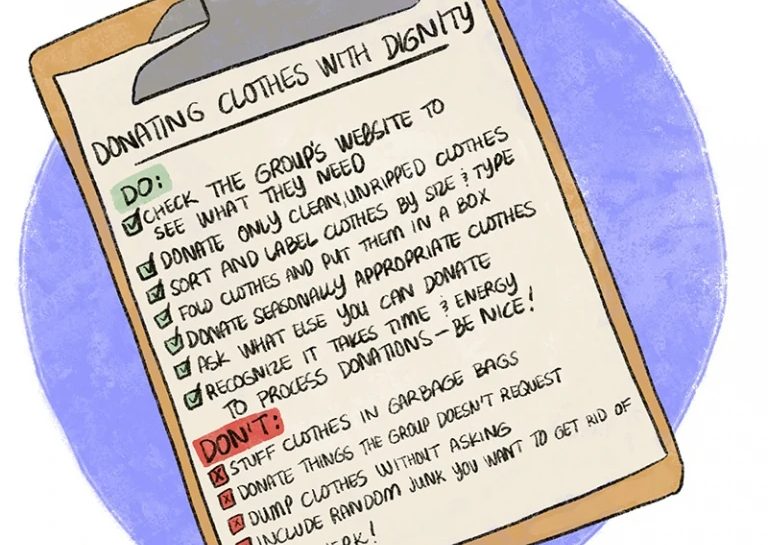 DONATING CLOTHES WITH DIGNITY
DO:
CHECK THE GROUP'S WEBSITE TO
SEE WHAT THEY NEED
DONATE ONLY CLEAN, UNRIPPED CLOTHES
SORT AND LABEL CLOTHES BY SIZE & TYPE
FOLD CLOTHES AND PUT THEM IN A BOX
DONATE SEASONALLY APPROPRIATE CLOTHES
ASK WHAT ELSE YOU CAN DONATE
RECOGNIZE IT TAKES TIME & ENERGY
TO PROCESS DONATIONS – BE NICE!
DON'T:
STUFF CLOTHES IN GARBAGE BAGS
DONATE THINGS THE GROUP DOESN'T REQUEST
DUMP CLOTHES WITHOUT ASKING
INCLUDE RANDOM JUNK YOU WANT TO GET RID OF